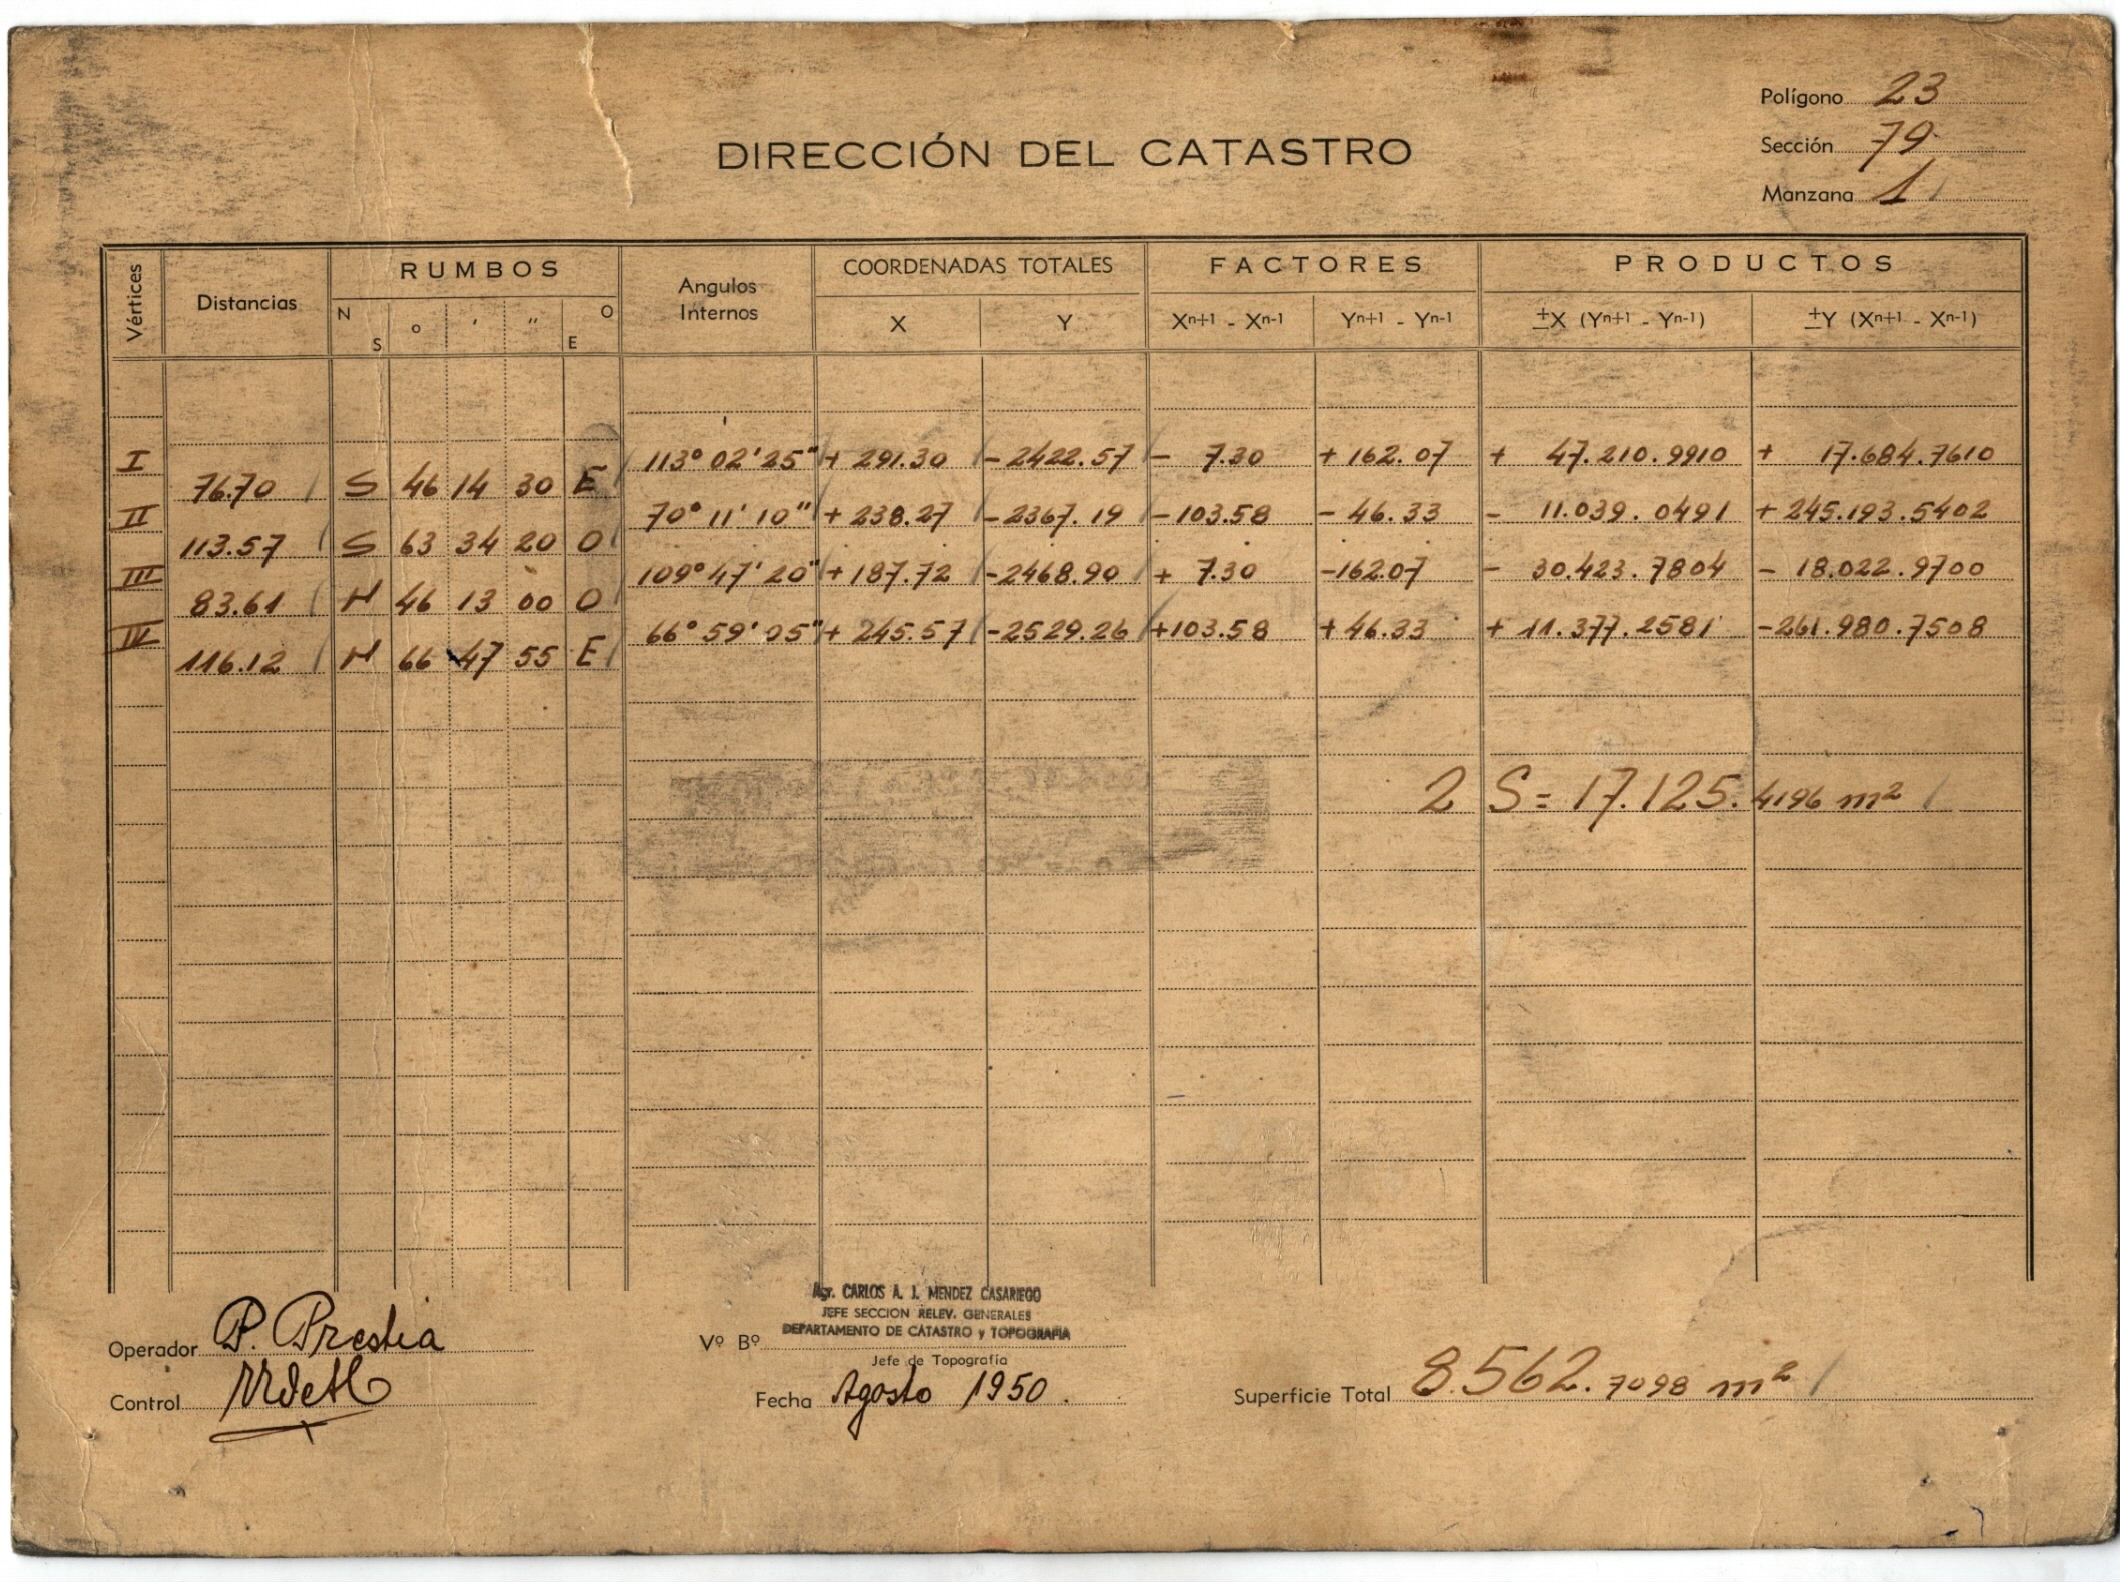 Polígono 23
DIRECCIÓN DEL CATASTRO
Sección 79
Manzana 1
Vértices Distancias RUMBOS N S o ' " O E Angulos Internos COORDENADAS TOTALES X Y FACTORES Xn+1 - Xn-1 Yn+1 - Yn-1 PRODUCTOS ±X (Yn+1 - Yn-1) ±Y (Xn+1 - Xn-1)
I 113° 02' 25" + 291.30 - 2422.57 - 7.30 + 162.07 + 47.210.9910 + 17.684.7610
76.70 S 46 14 30 E
II 70° 11' 10" + 238.27 - 2367.19 - 103.58 - 46.33 - 11.039.0491 + 245.193.5402
113.57 S 63 34 20 O
III 109° 47' 20" + 187.72 - 2468.90 + 7.30 - 162.07 - 30.423.7804 - 18.022.9700
83.61 N 46 13 00 O
IV 66° 59' 05" + 245.57 - 2529.26 + 103.58 + 46.33 + 11.377.2581 - 261.980.7508
116.12 N 66 47 55 E
2 S = 17.125.4196 m²
Agr. CARLOS A. J. MENDEZ CASARIEGO
JEFE SECCION RELEV. GENERALES
DEPARTAMENTO DE CATASTRO y TOPOGRAFIA
Operador P. Prestia
Vº Bº
Jefe de Topografía
Control
Fecha Agosto 1950.
Superficie Total 8.562.7098 m²